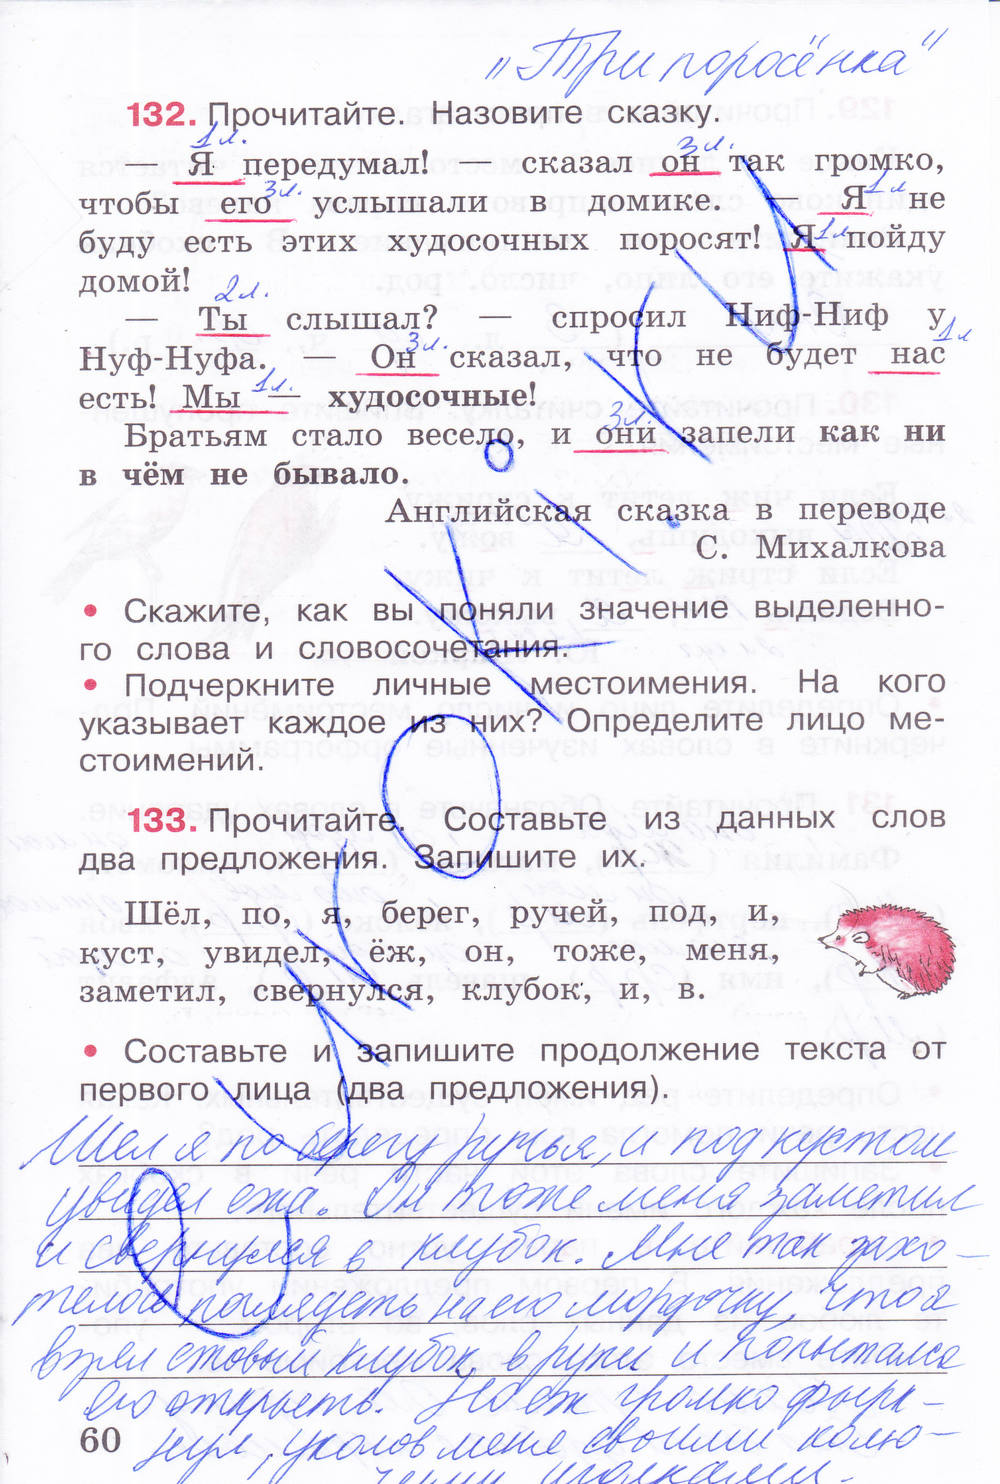 "Три поросёнка"
132. Прочитайте. Назовите сказку.
1л. 3л.
— Я передумал! — сказал он так громко,
3л. 1л
чтобы его услышали в домике. — Я не
1л
буду есть этих худосочных поросят! Я пойду
домой!
2л.
— Ты слышал? — спросил Ниф-Ниф у
3л. 1л
Нуф-Нуфа. — Он сказал, что не будет нас
1л.
есть! Мы — худосочные!
3л.
Братьям стало весело, и они запели как ни
в чём не бывало.
Английская сказка в переводе
С. Михалкова
• Скажите, как вы поняли значение выделенно-
го слова и словосочетания.
• Подчеркните личные местоимения. На кого
указывает каждое из них? Определите лицо ме-
стоимений.
133. Прочитайте. Составьте из данных слов
два предложения. Запишите их.
Шёл, по, я, берег, ручей, под, и,
куст, увидел, ёж, он, тоже, меня,
заметил, свернулся, клубок, и, в.
• Составьте и запишите продолжение текста от
первого лица (два предложения).
Шел я по берегу ручья, и под кустом
увидел ежа. Он тоже меня заметил
и свернулся в клубок. Мне так захо-
телось поглядеть на его мордочку, что я
взял клубок в руки и попытался
его открыть. Но ёж громко фырк-
нул, уколов меня своими колю-
чими иголками.
60